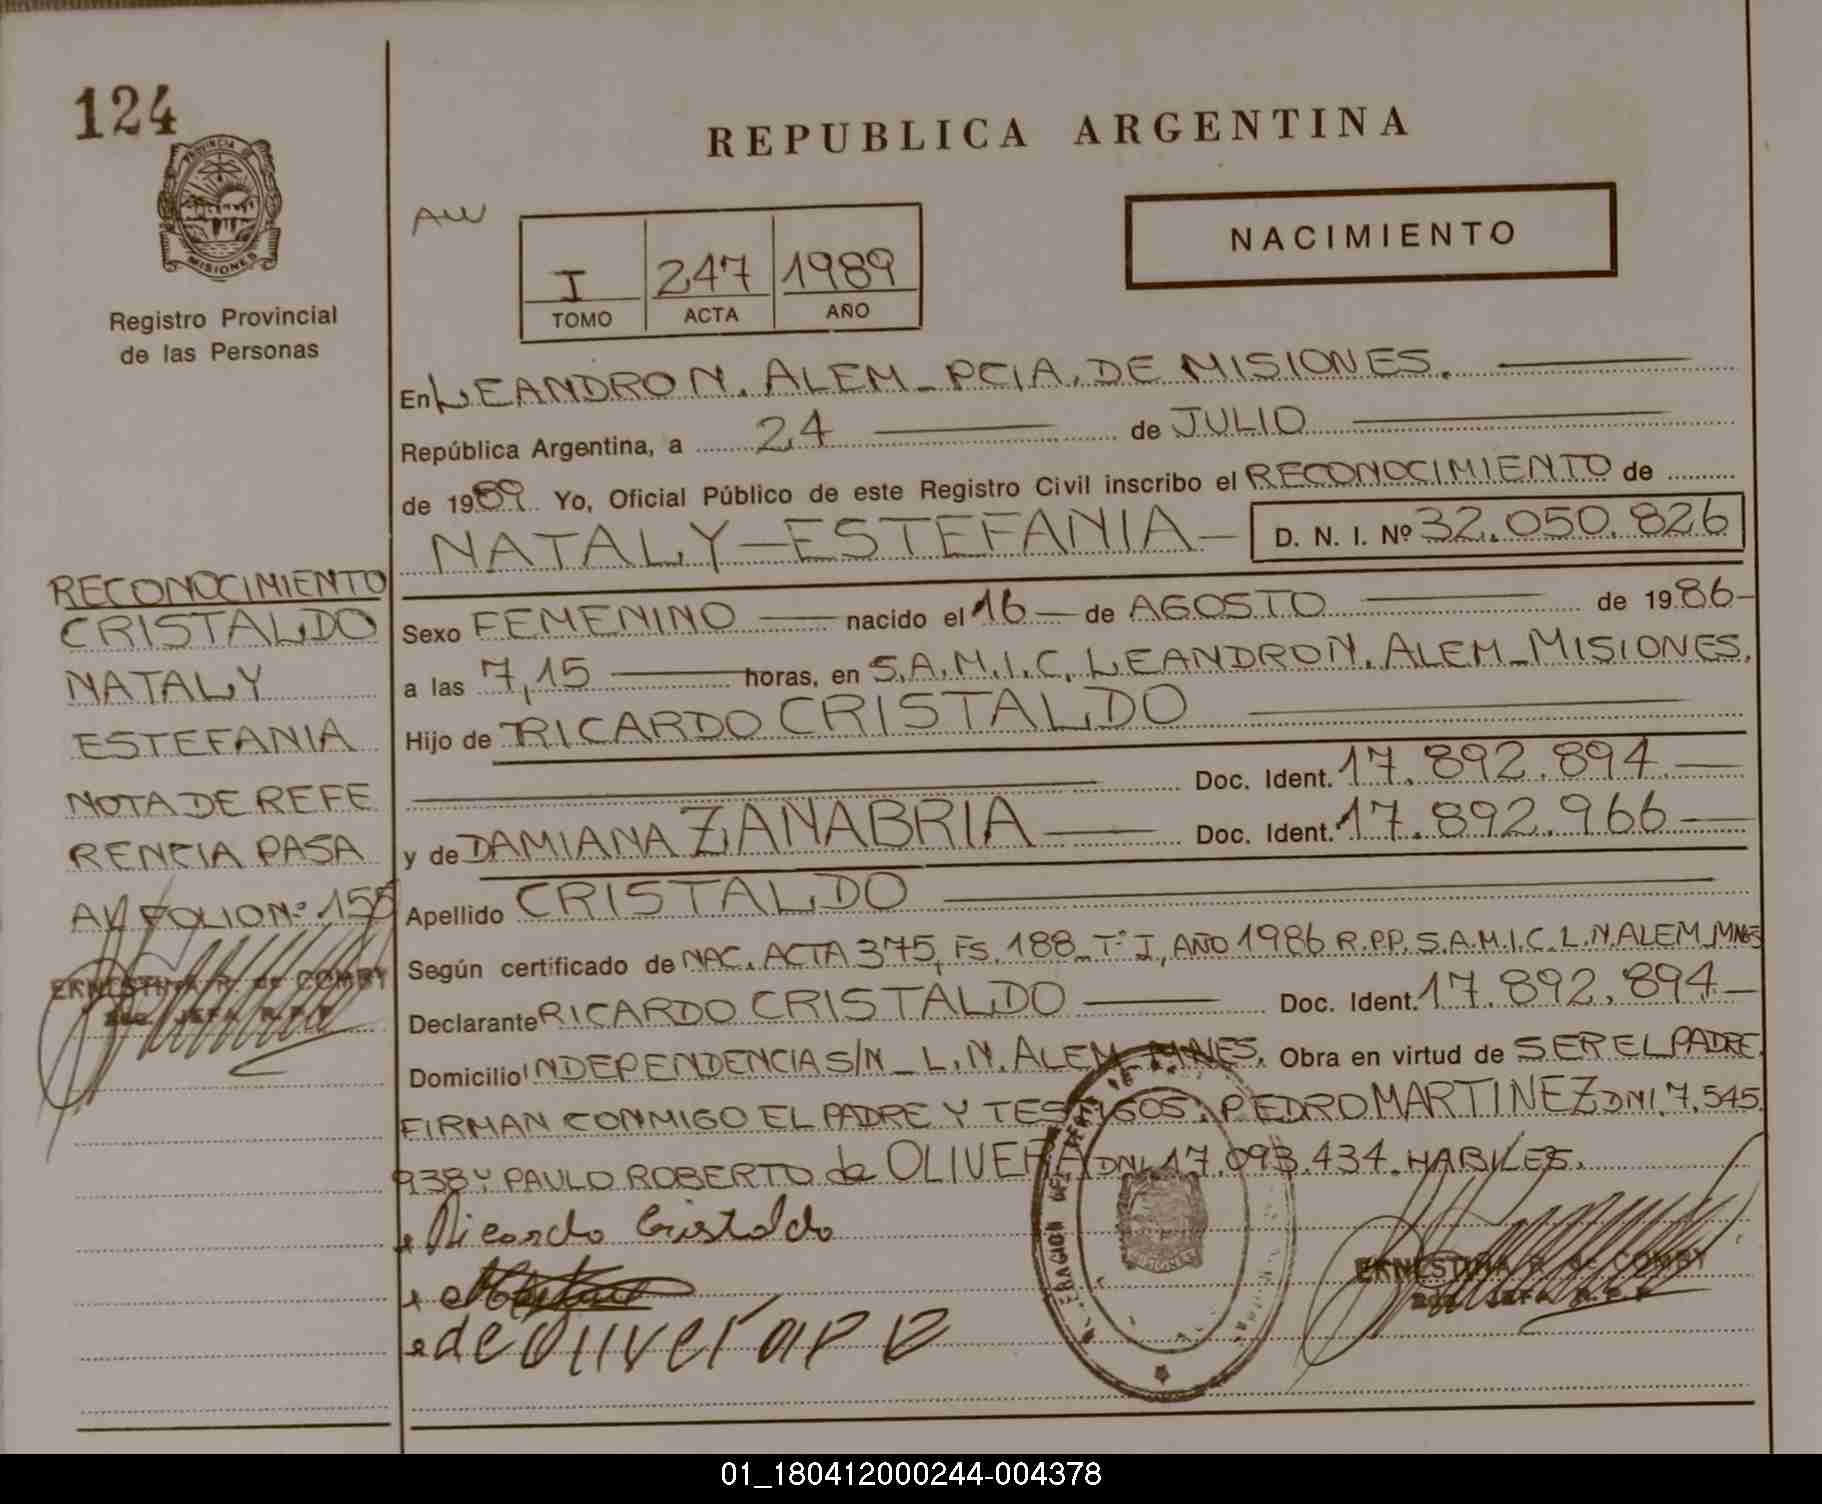 124
PROVINCIA DE
MISIONES
Registro Provincial
de las Personas
REPUBLICA ARGENTINA
AW
I 247 1989
TOMO ACTA AÑO
NACIMIENTO
En LEANDRO N. ALEM_PCIA. DE MISIONES.
República Argentina, a 24 de JULIO
de 1989. Yo, Oficial Público de este Registro Civil inscribo el RECONOCIMIENTO de
NATALY-ESTEFANIA- D. N. I. Nº 32.050.826
Sexo FEMENINO nacido el 16 de AGOSTO de 1986-
a las 7,15 horas, en S.A.M.I.C. LEANDRO N. ALEM_MISIONES.
Hijo de RICARDO CRISTALDO
Doc. Ident. 17.892.894
y de DAMIANA ZANABRIA Doc. Ident. 17.892.966
Apellido CRISTALDO
Según certificado de NAC. ACTA 375, Fs. 188_Tº I, AÑO 1986 R.P.P. S.A.M.I.C. L.N. ALEM_MNES
Declarante RICARDO CRISTALDO Doc. Ident. 17.892.894-
Domicilio INDEPENDENCIA S/N_L.N. ALEM MNES. Obra en virtud de SER EL PADRE.
FIRMAN CONMIGO EL PADRE Y TESTIGOS: PEDRO MARTINEZ DNI. 7.545.
938 Y PAULO ROBERTO de OLIVERA DNI. 17.093.434. HABILES.
Ricardo Cristaldo
de Olivera P R
ERNESTINA R. de COMBY
JEFA R.P.P
MISIONES
RECONOCIMIENTO
CRISTALDO
NATALY
ESTEFANIA
NOTA DE REFE
RENCIA PASA
AL FOLIO Nº 155
ERNESTINA R. de COMBY
JEFA R.P.P
01_180412000244-004378